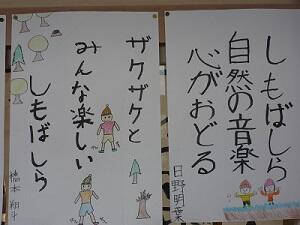 しもばしら
自然の音楽
心がおどる
日野明葉
ザクザクと
みんな楽しい
しもばしら
橋本 翔斗